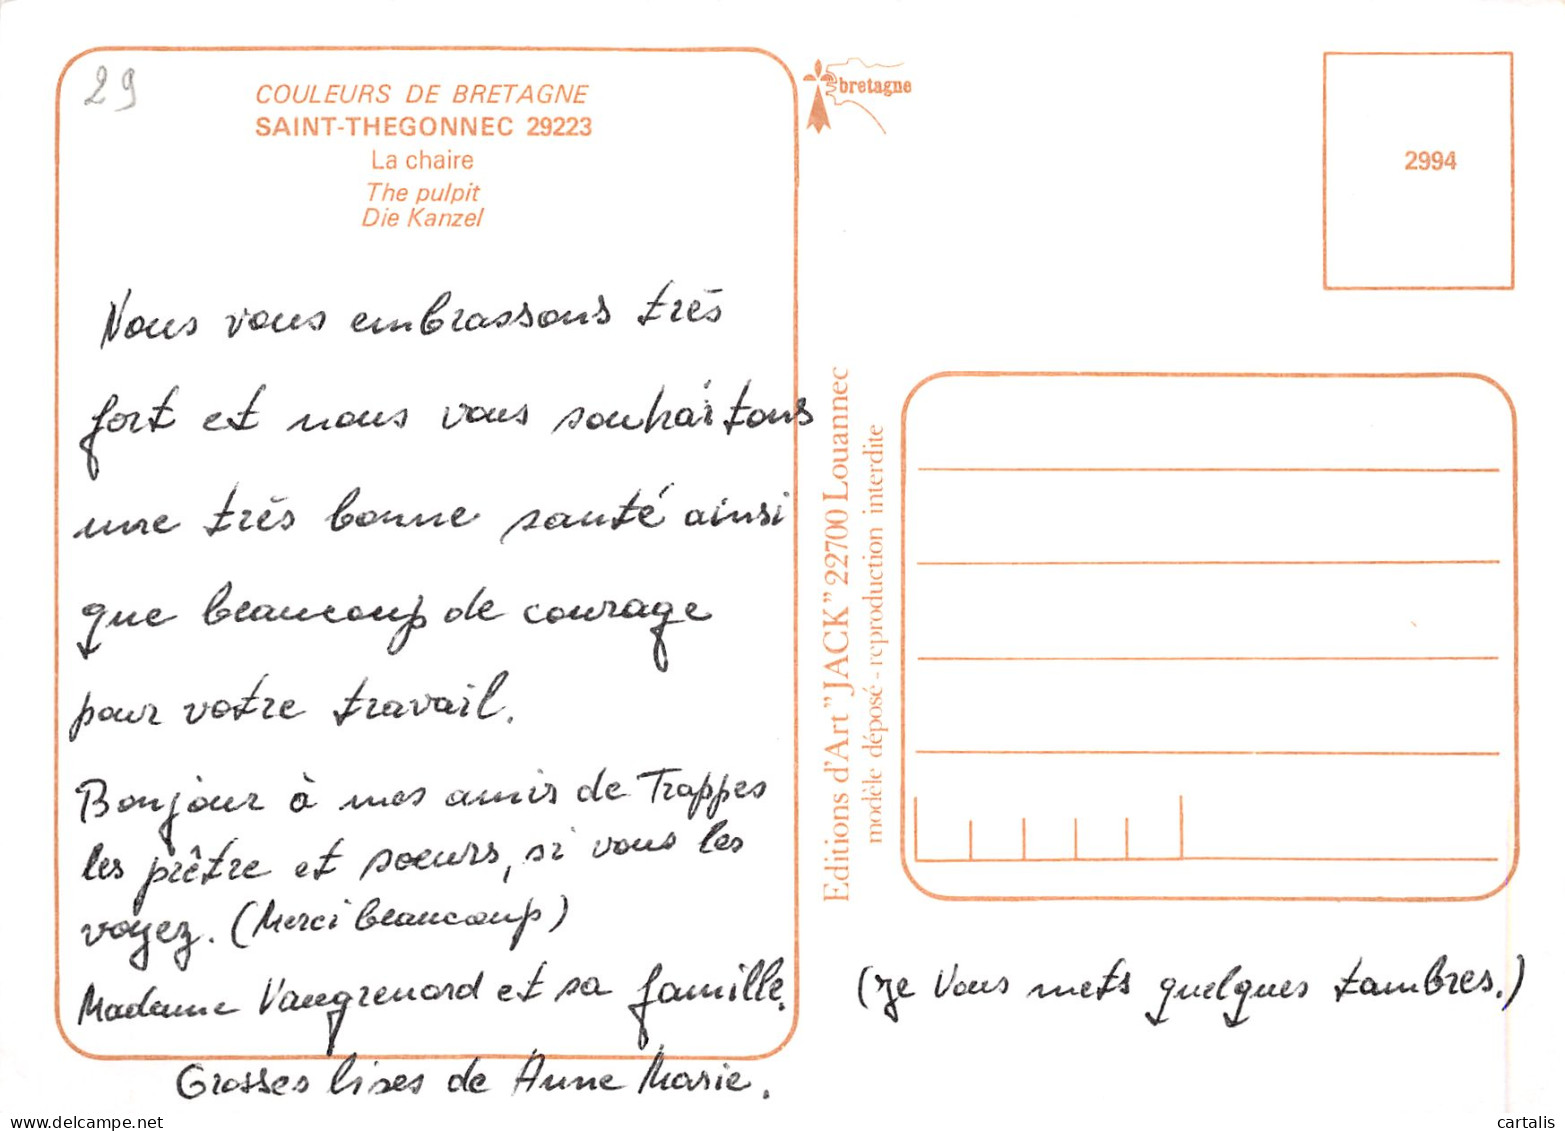 29
COULEURS DE BRETAGNE
SAINT-THEGONNEC 29223
La chaire
The pulpit
Die Kanzel
Nous vous embrassons très
fort et nous vous souhaitons
une très bonne santé ainsi
que beaucoup de courage
pour votre travail.
Bonjour à mes amis de Trappes
les prêtre et soeurs, si vous les
voyez. (Merci beaucoup)
Madame Vaugrenard et sa famille.
Grosses bises de Anne Marie.
bretagne
2994
Editions d'Art "JACK" 22700 Louannec
modèle déposé - reproduction interdite
(je vous mets quelques tambres.)
delcampe.net
cartalis